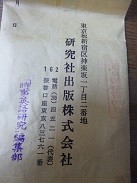 東京都新宿区神楽坂一丁目二番地
研究社出版株式会社
162 電話(269)四五二一(代表)
振替口座東京八三七六一番
時事英語研究 編集部